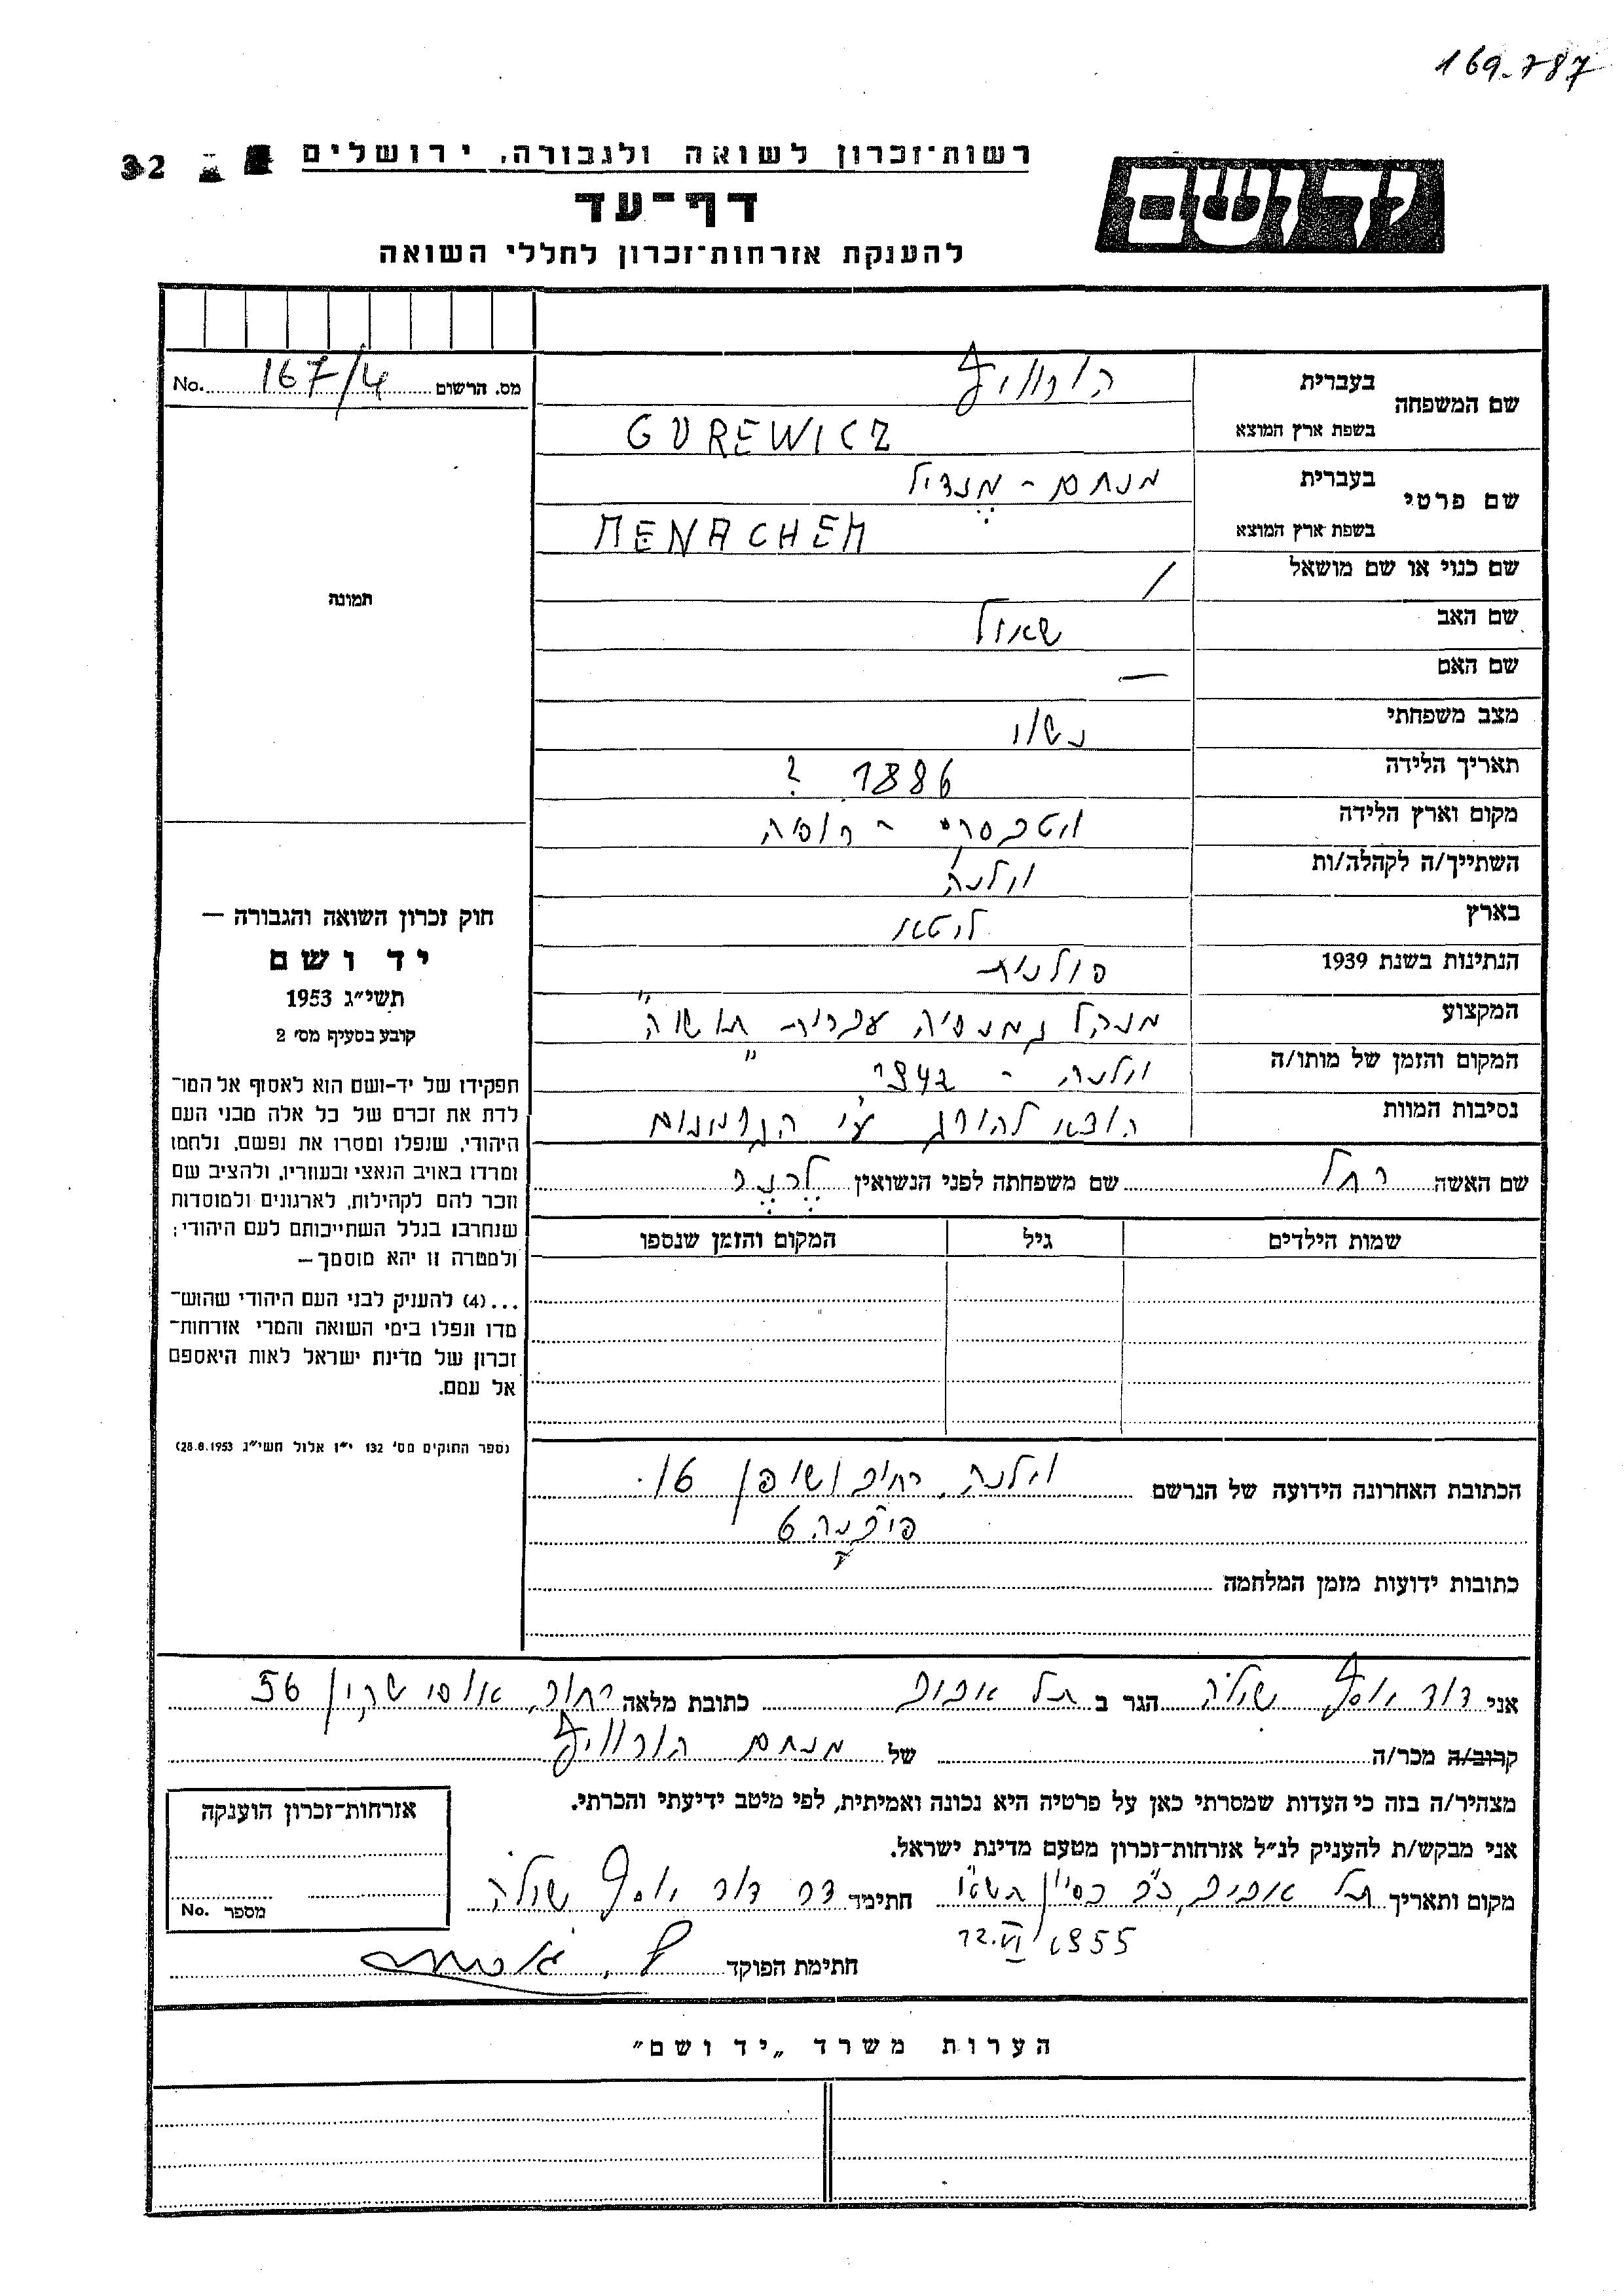 169.787
32
רשות־זכרון לשואה ולגבורה, ירושלים
ידושם
דף־עד
להענקת אזרחות־זכרון לחללי השואה
מס. הרשום 167/4 No.
תמונה
שם המשפחה בעברית הורוויץ
בשפת ארץ המוצא GUREWICZ
שם פרטי בעברית מנחם - מנדיל
בשפת ארץ המוצא MENACHEM
שם כנוי או שם מושאל /
שם האב שאול
שם האם —
מצב משפחתי נשוי
תאריך הלידה 1886 ?
מקום וארץ הלידה רוסיה
השתייך/ה לקהלה/ות וילנה
בארץ ליטא
הנתינות בשנת 1939 פולנית
המקצוע מנהל גמנסיה עברית "תושיה"
המקום והזמן של מותו/ה וילנה - 1942
נסיבות המוות הוצא להורג ע"י הגרמנים
שם האשה רחל שם משפחתה לפני הנשואין
שמות הילדים גיל המקום והזמן שנספו
הכתובת האחרונה הידועה של הנרשם וילנה, רחוב 16
6
כתובות ידועות מזמן המלחמה
חוק זכרון השואה והגבורה —
יד ושם
תשי״ג 1953
קובע בסעיף מס׳ 2
תפקידו של יד-ושם הוא לאסוף אל המו־
לדת את זכרם של כל אלה מבני העם
היהודי, שנפלו ומסרו את נפשם, נלחמו
ומרדו באויב הנאצי ובעוזריו, ולהציב שם
וזכר להם לקהילות, לארגונים ולמוסדות
שנחרבו בגלל השתייכותם לעם היהודי;
ולמטרה זו יהא מוסמך—
...(4) להעניק לבני העם היהודי שהוש־
מדו ונפלו בימי השואה והמרי אזרחות־
זכרון של מדינת ישראל לאות היאספם
אל עמם.
(ספר החוקים מס׳ 132 י״ז אלול תשי״ג 28.8.1953)
אני דוד יוסף הגר ב תל אביב כתובת מלאה רחוב אוסישקין 56
קרוב/ה מכר/ה של מנחם הורוויץ
מצהיר/ה בזה כי העדות שמסרתי כאן על פרטיה היא נכונה ואמיתית, לפי מיטב ידיעתי והכרתי.
אני מבקש/ת להעניק לנ״ל אזרחות־זכרון מטעם מדינת ישראל.
מקום ותאריך תל אביב, כ"ב סיון תשט"ו חתימה דוד יוסף
12.VI 1955
חתימת הפוקד
אזרחות־זכרון הוענקה
מספר No.
הערות משרד „יד ושם״